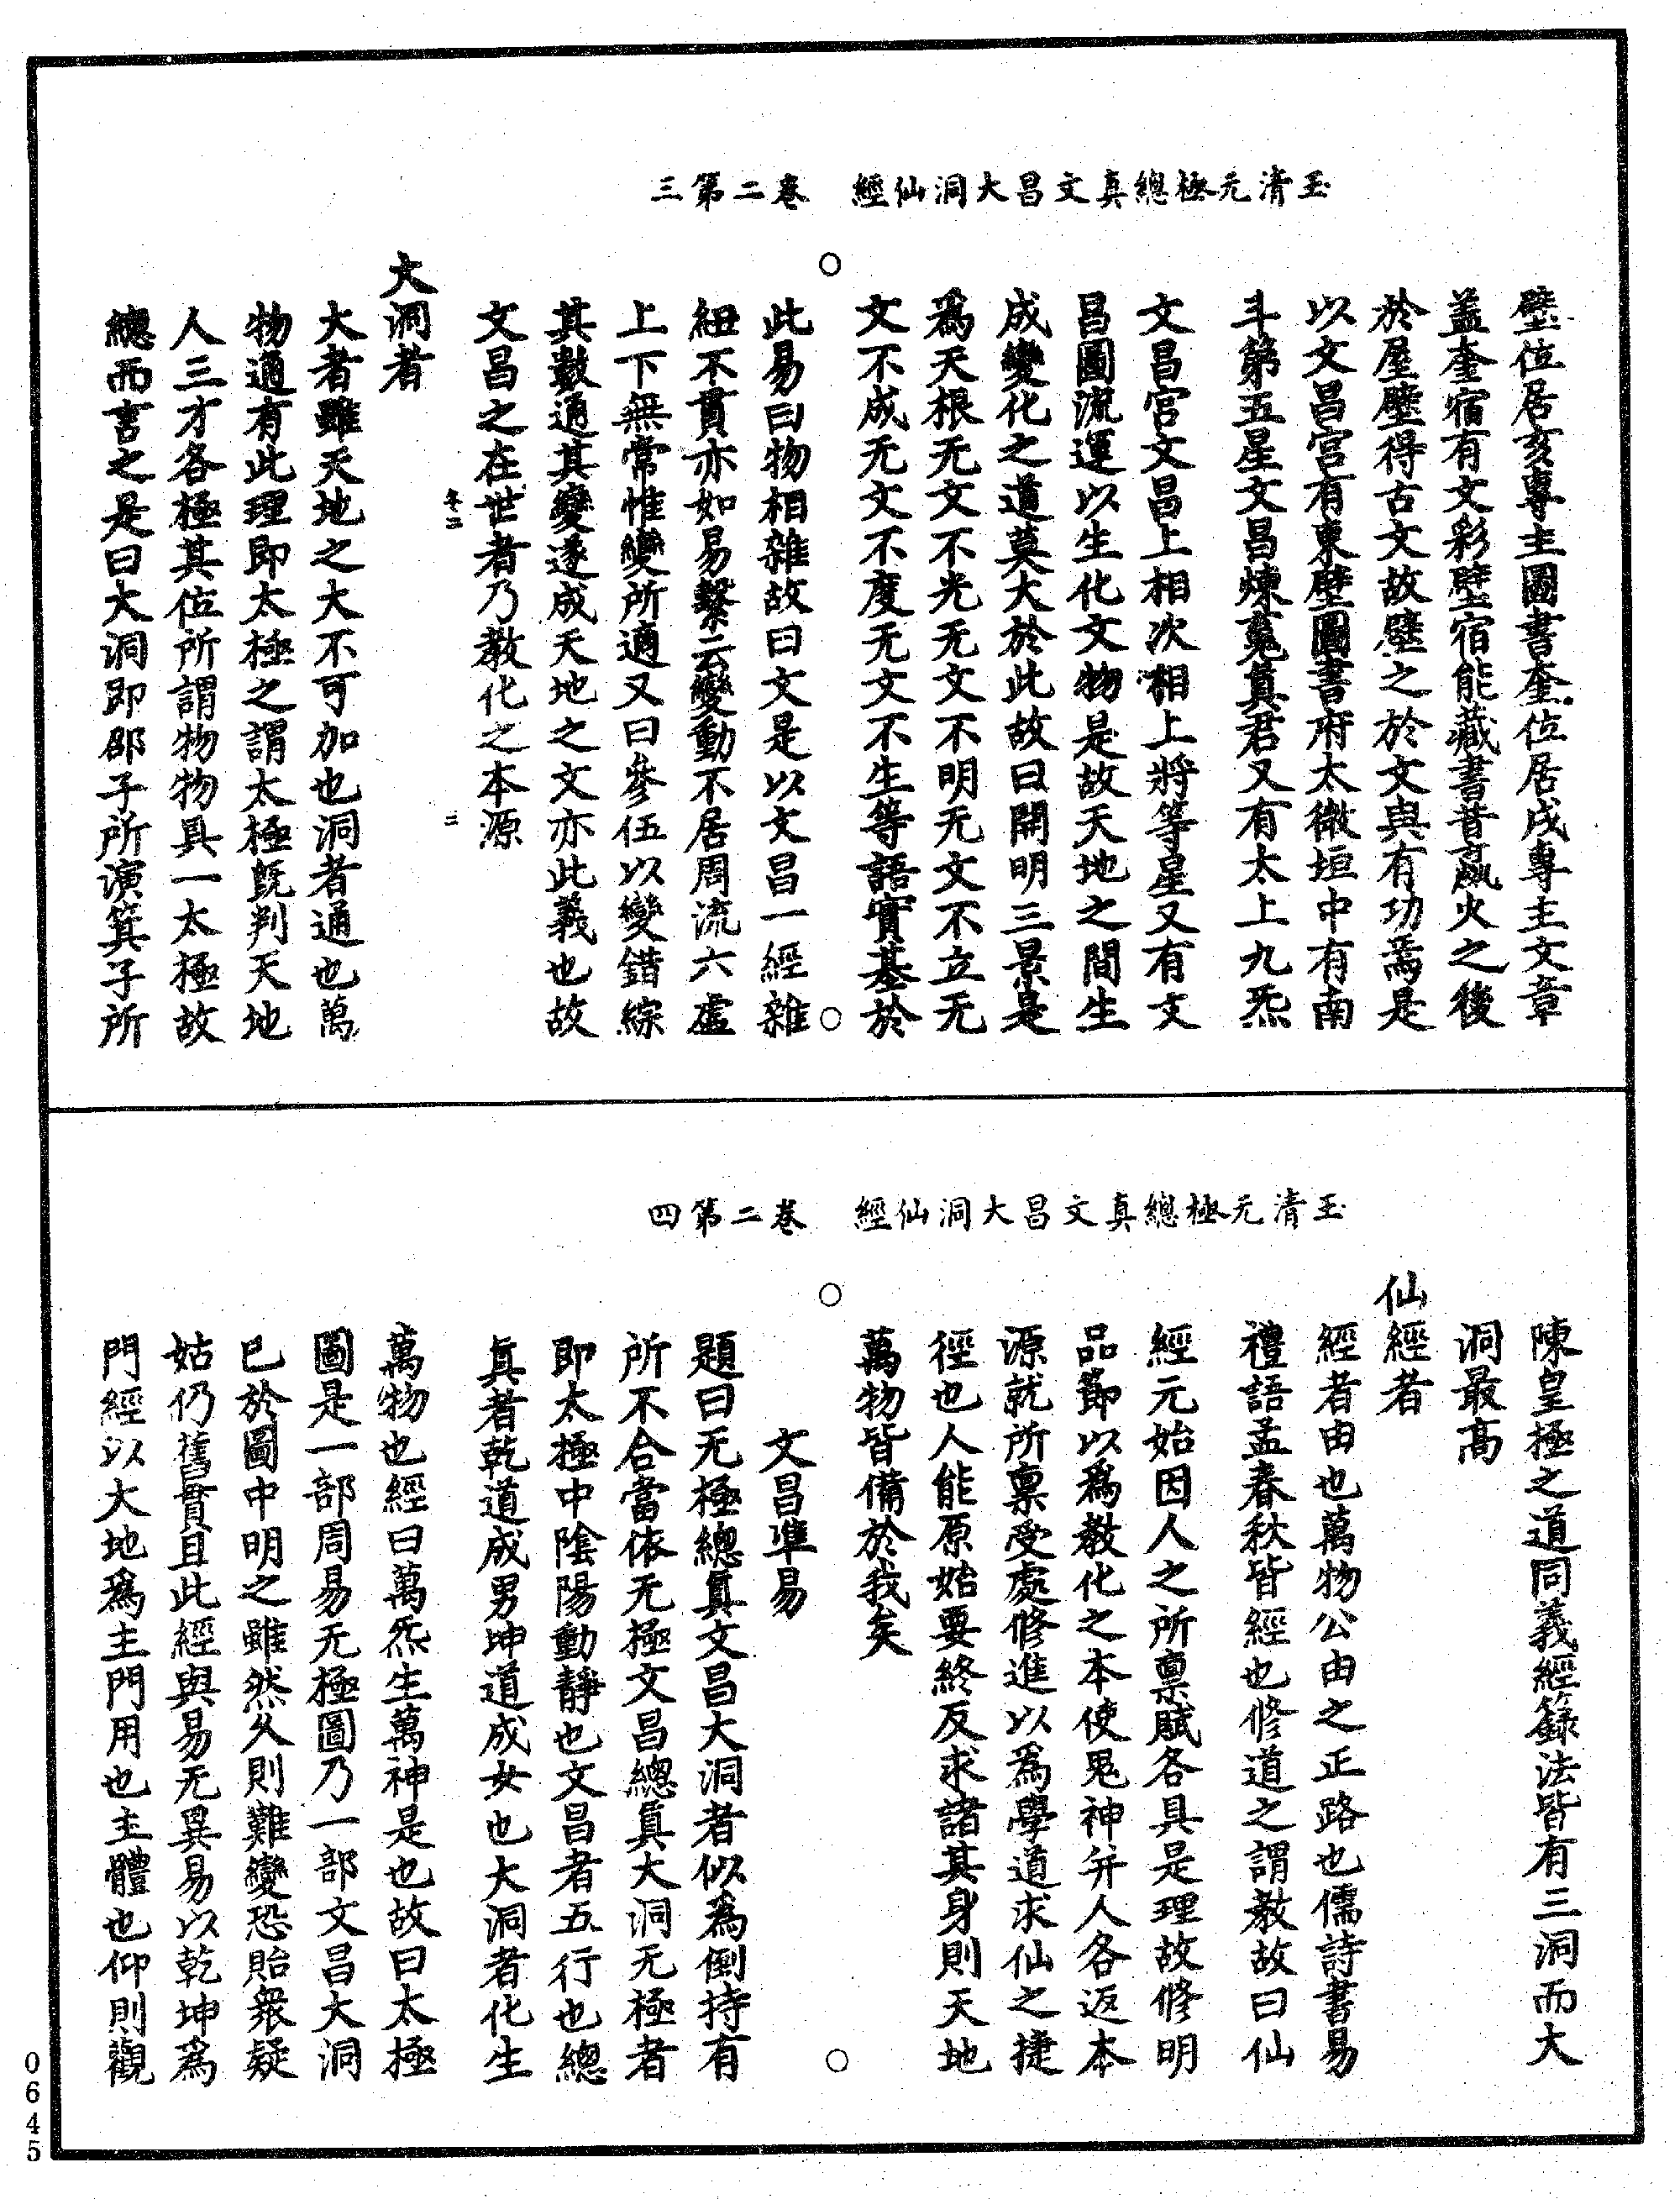 玉清无極總真文昌大洞仙經　卷二第三
壁位居亥專主圖書奎位居戌專主文章
蓋奎宿有文彩壁宿能藏書昔嬴火之後
於屋壁得古文故壁之於文與有功焉是
以文昌宮有東壁圖書府太微垣中有南
斗第五星文昌煉䰟真君又有太上九炁
文昌宮文昌上相次相上將等星又有文
昌圖流運以生化文物是故天地之間生
成變化之道莫大於此故曰開明三景是
爲天根无文不光无文不明无文不立无
文不成无文不度无文不生等語實基於
此易曰物相雜故曰文是以文昌一經雜
紐不貫亦如易繫云變動不居周流六虛
上下無常惟變所適又曰參伍以變錯綜
其數通其變遂成天地之文亦此義也故
文昌之在世者乃教化之本源
冬二　三
大洞者
大者雖天地之大不可加也洞者通也萬
物通有此理即太極之謂太極既判天地
人三才各極其位所謂物物具一太極故
總而言之是曰大洞即邵子所演箕子所
玉清无極總真文昌大洞仙經　卷二第四
陳皇極之道同義經籙法皆有三洞而大
洞最高
仙經者
經者由也萬物公由之正路也儒詩書易
禮語孟春秋皆經也修道之謂教故曰仙
經元始因人之所禀賦各具是理故修明
品節以爲教化之本使鬼神并人各返本
源就所禀受處修進以爲學道求仙之捷
徑也人能原始要終反求諸其身則天地
萬物皆備於我矣
文昌準易
題曰无極總真文昌大洞者似爲倒持有
所不合當依无極文昌總真大洞无極者
即太極中陰陽動靜也文昌者五行也總
真者乾道成男坤道成女也大洞者化生
萬物也經曰萬炁生萬神是也故曰太極
圖是一部周易无極圖乃一部文昌大洞
已於圖中明之雖然久則難變恐貽衆疑
姑仍舊貫且此經與易无異易以乾坤爲
門經以大地爲主門用也主體也仰則觀
0645